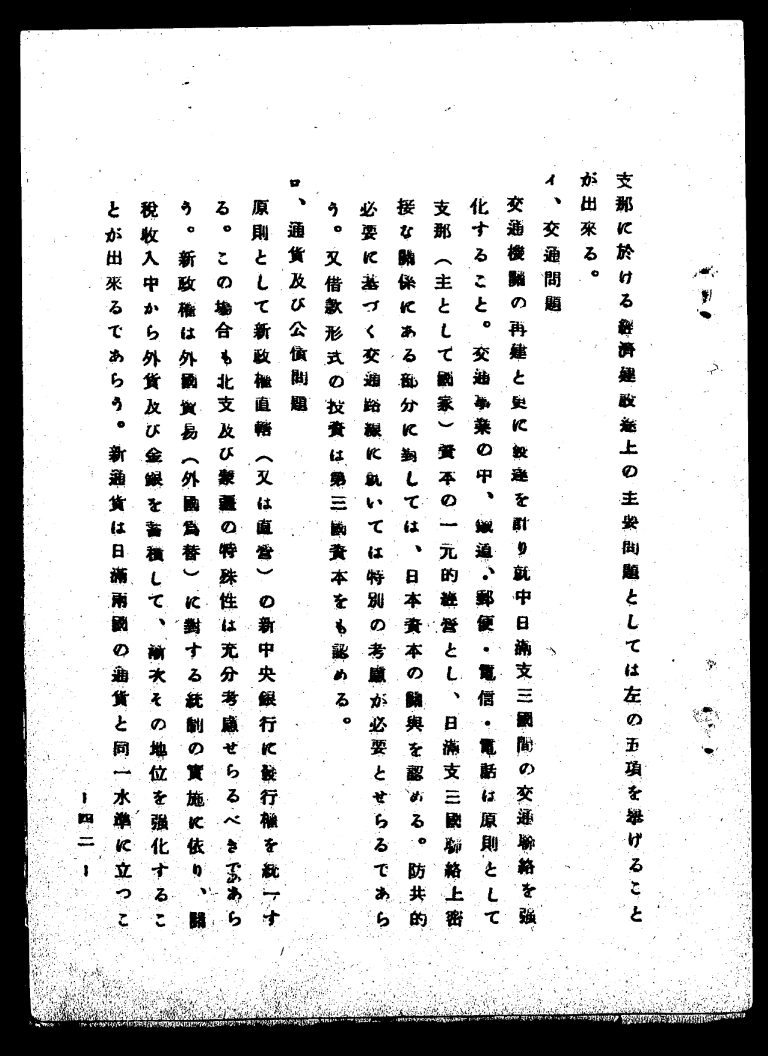 支那に於ける經濟建設途上の主要問題としては左の五項を擧げること
が出來る。
イ、交通問題
交通機關の再建と更に發達を計り就中日滿支三國間の交通聯絡を強
化すること。交通事業の中、鐵道、郵便・電信・電話は原則として
支那（主として國家）資本の一元的經營とし、日滿支三國聯絡上密
接な關係にある部分に對しては、日本資本の關與を認める。防共的
必要に基づく交通路線に就いては特別の考慮が必要とせらるであら
う。又借款形式の投資は第三國資本をも認める。
ロ、通貨及び公債問題
原則として新政權直轄（又は直營）の新中央銀行に發行權を統一す
る。この場合も北支及び蒙疆の特殊性は充分考慮せらるべきであら
う。新政權は外國貿易（外國爲替）に對する統制の實施に依り、關
稅收入中から外貨及び金銀を蓄積して、漸次その地位を強化するこ
とが出來るであらう。新通貨は日滿兩國の通貨と同一水準に立つこ
－四二－